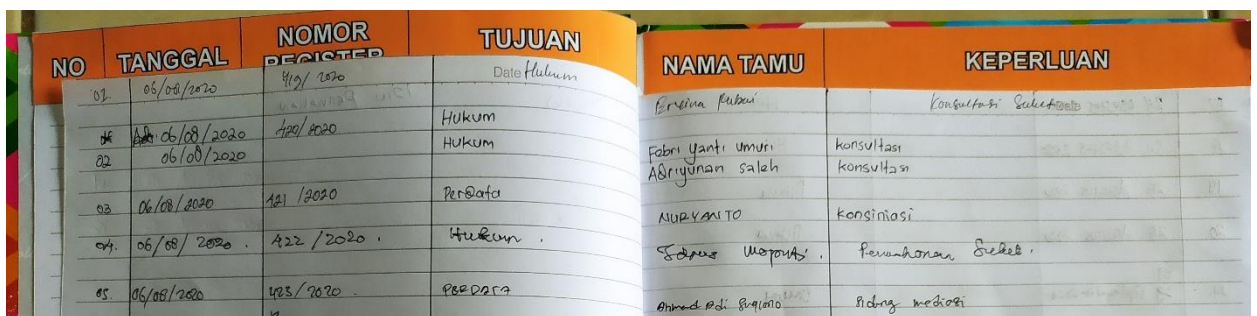 NO TANGGAL NOMOR REGISTER TUJUAN NAMA TAMU KEPERLUAN
Date
01. 06/08/2020 419/2020 Hukum Rubai Konsultasi
06/08/2020 420/2020 Hukum Febri Yanti Umuri konsultasi
02 06/08/2020 Hukum Adriyunan Saleh konsultasi
03 06/08/2020 421/2020 Perdata NURYANTO Konsiniasi
04. 06/08/2020. 422/2020. Hukum.
05. 06/08/2020 423/2020. PERDATA Ahmad Edi Sugiono Sidang mediasi